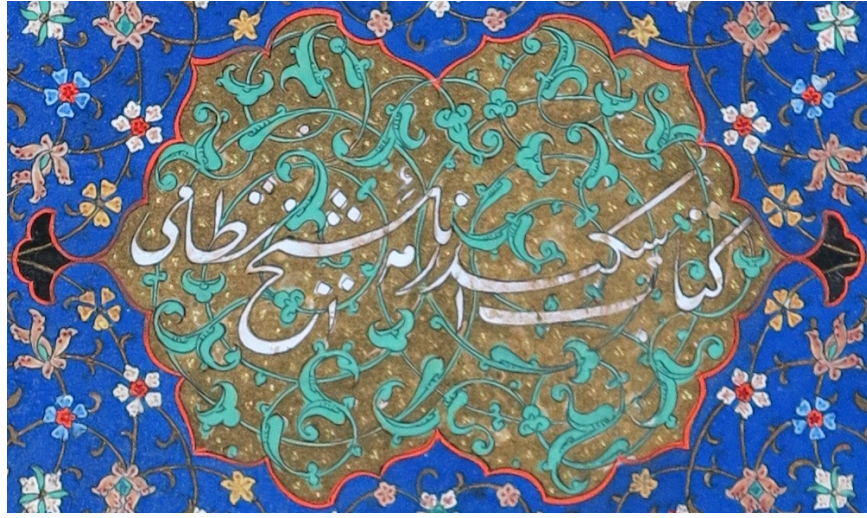 کتاب اسکندر نامهٔ از شیخ نظامی